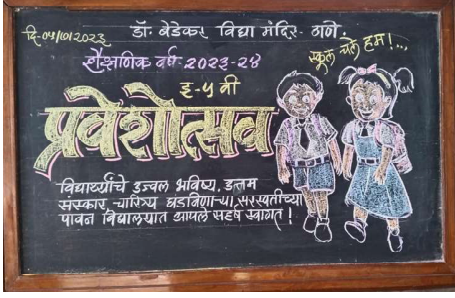 डॉ. बेडेकर विद्या मंदिर- ठाणे
शैक्षणिक वर्ष- २०२३-२४
स्कूल चले हम!...
इ-५ वी
प्रवेशोत्सव
विद्यार्थ्यांचे उज्वल भविष्य, उत्तम
संस्कार, चारित्र्य घडविणाऱ्या, सरस्वतीच्या
पावन विद्यालयात आपले सहर्ष स्वागत!